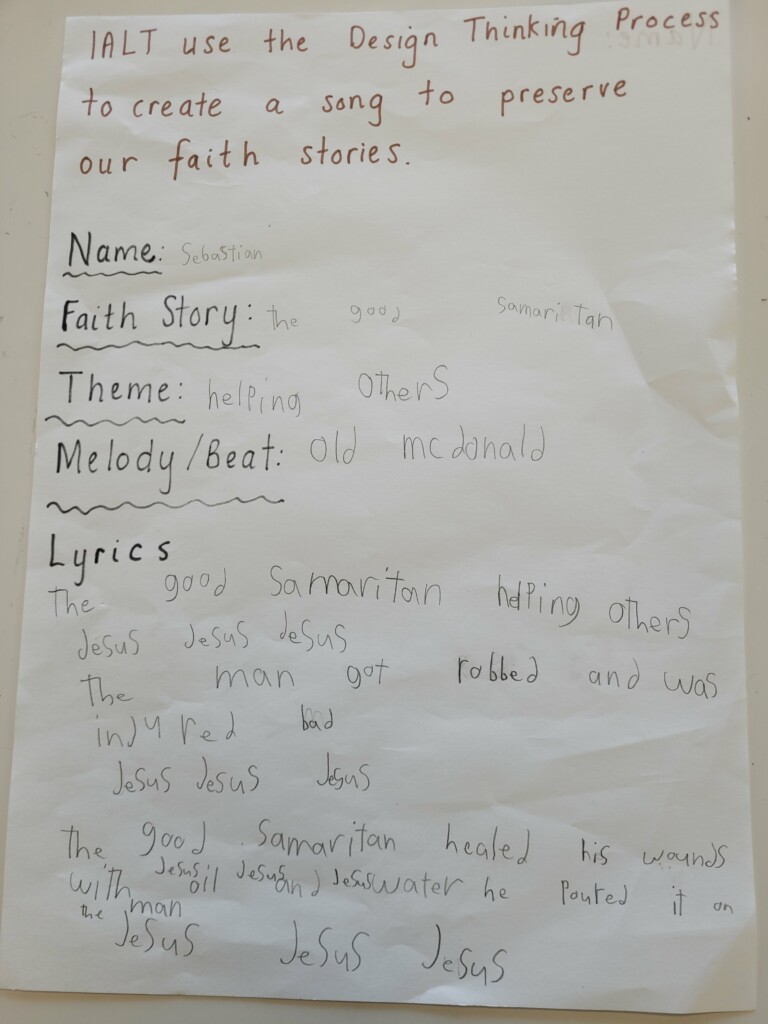 IALT use the Design Thinking Process
to create a song to preserve
our faith stories.
Name: Sebastian
Faith Story: the good samaritan
Theme: helping others
Melody/Beat: old mcdonald
Lyrics
The good Samaritan helping others
Jesus Jesus Jesus
The man got robbed and was
injured bad
Jesus Jesus Jesus
the good Samaritan healed his wounds
Jesus Jesus Jesus
with oil and water he Poured it on
the man
Jesus Jesus Jesus